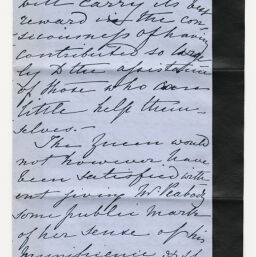 will carry its best
reward in the con-
sciousness of having
contributed so large
ly to the assistance
of those who can
little help them-
selves. —
The Queen would
not however have
been satisfied with-
out giving Mr Peabody
some public mark
of her sense of his
munificence